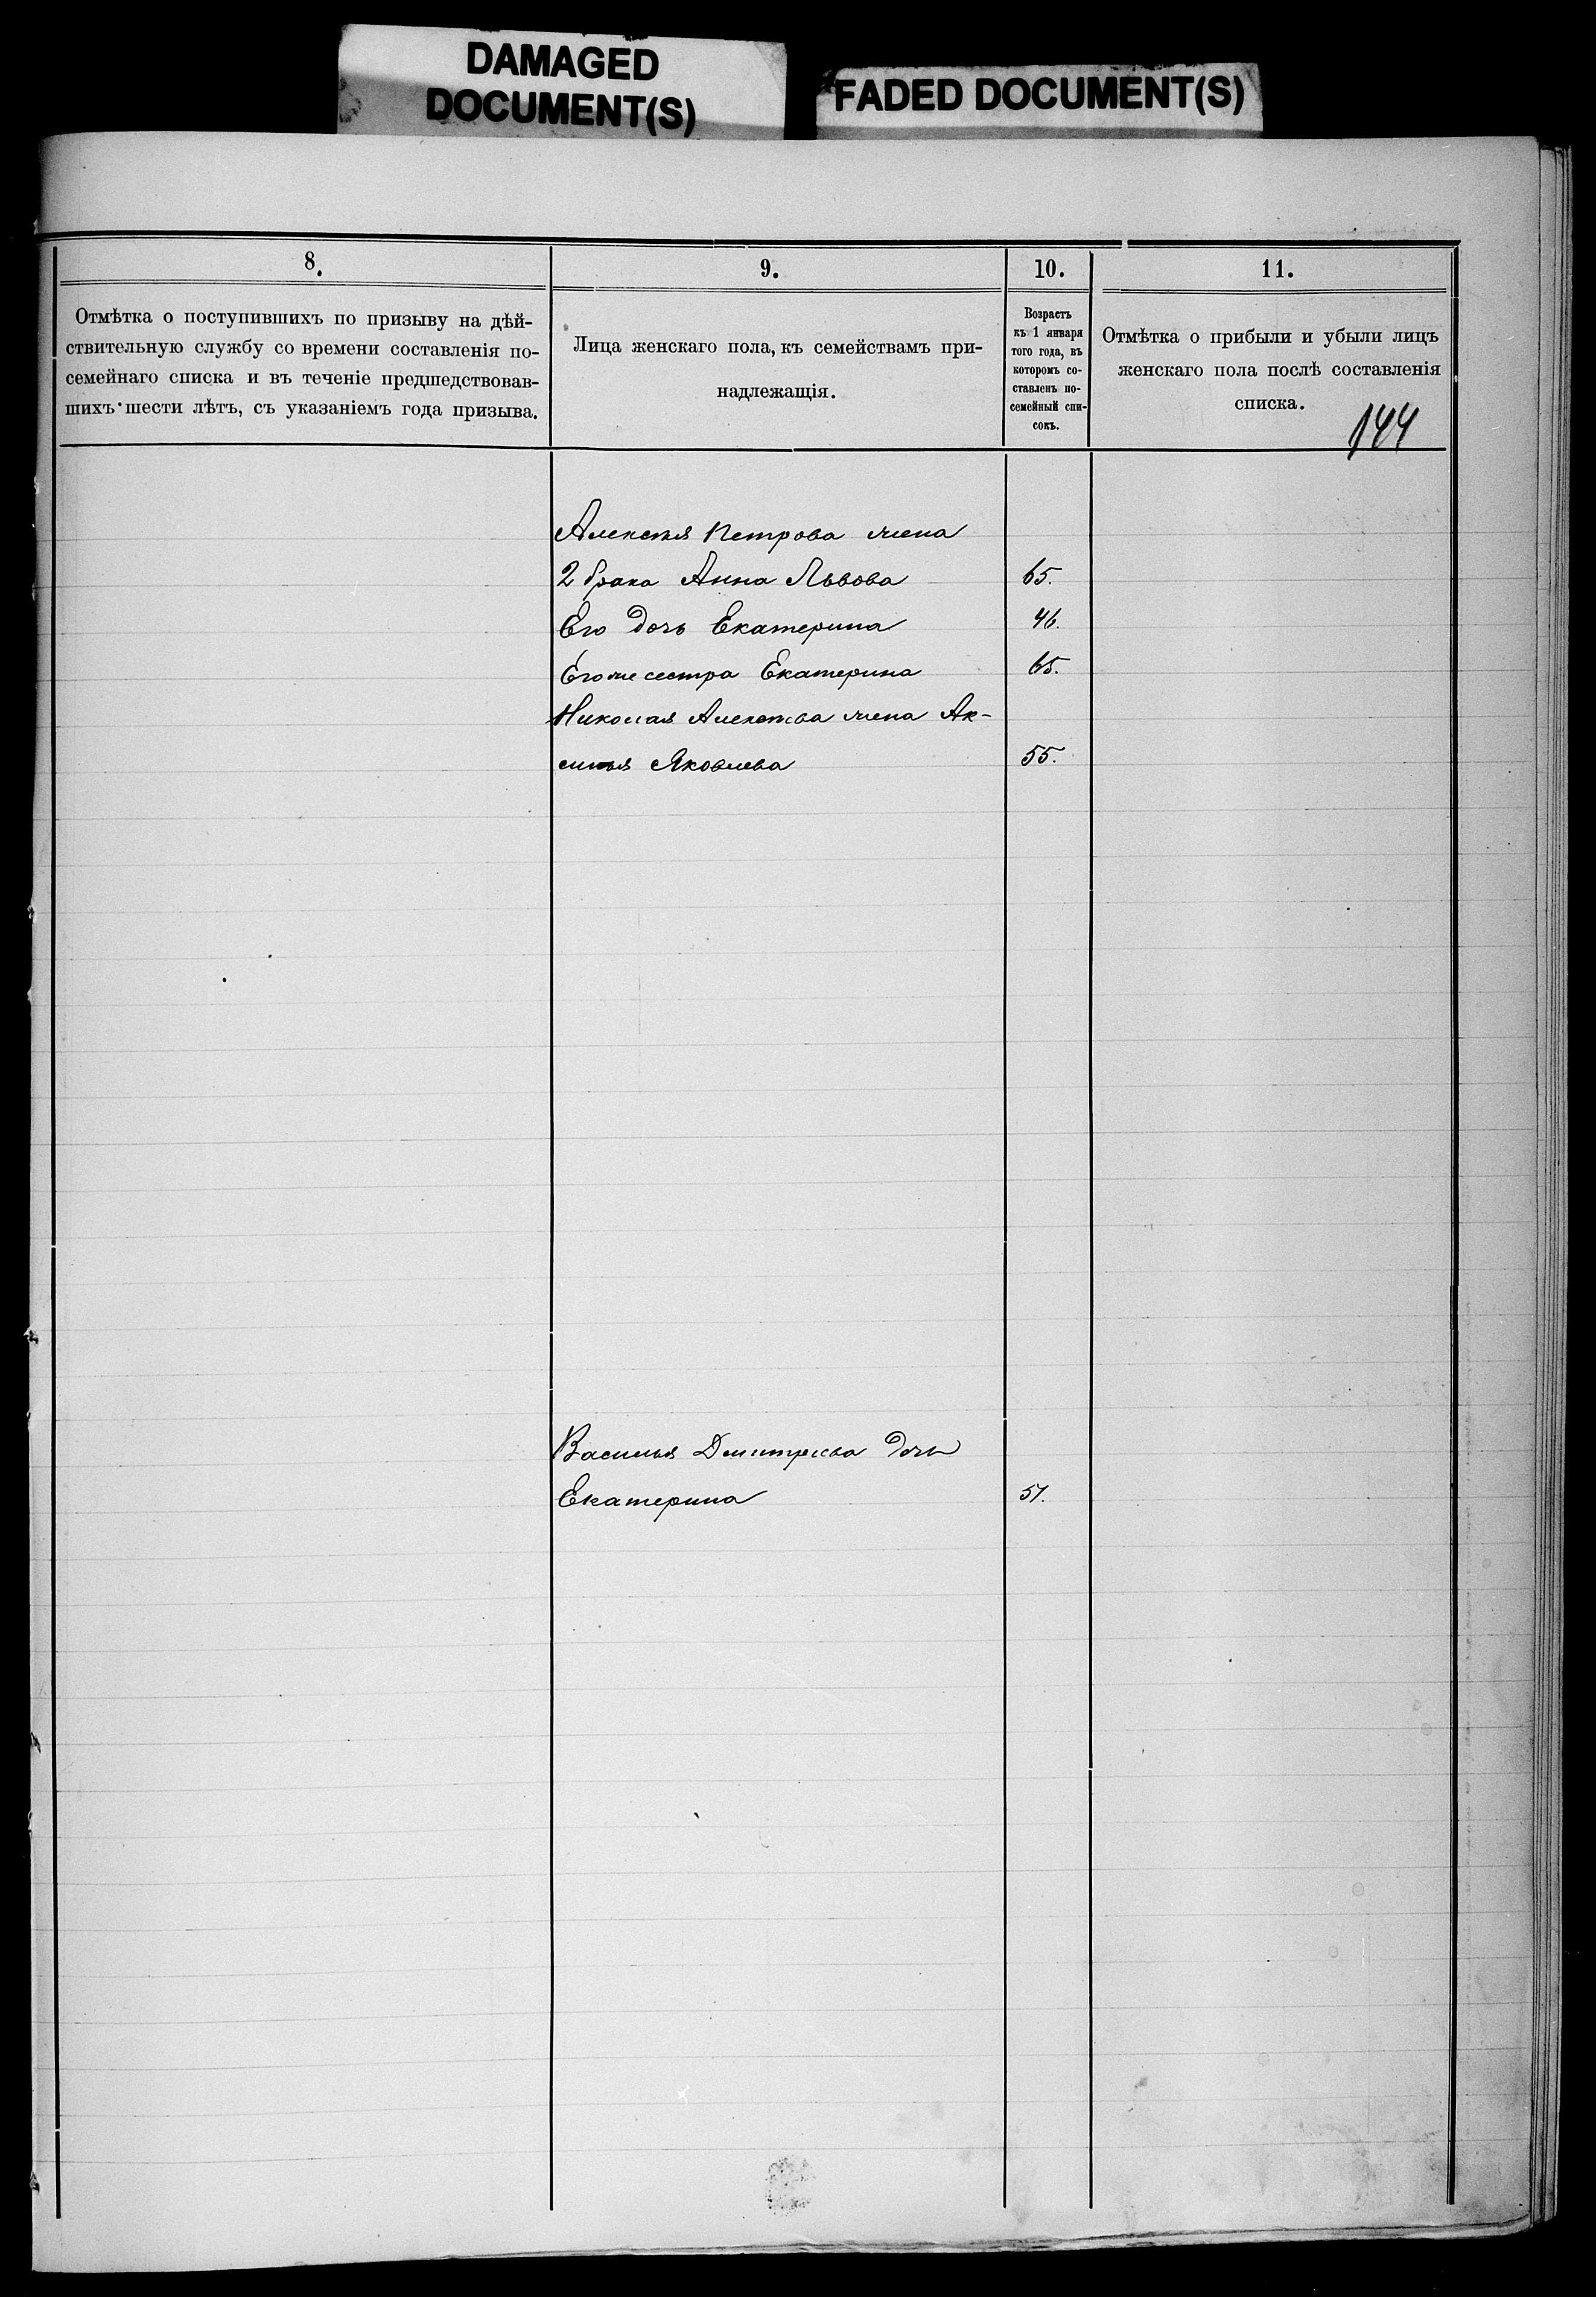 DAMAGED
DOCUMENT(S)
FADED DOCUMENT(S)
8.
Отмѣтка о поступившихъ по призыву на дѣй-
ствительную службу со времени составленія по-
семейнаго списка и въ теченіе предшедствовав-
шихъ шести лѣтъ, съ указаніемъ года призыва.
9.
Лица женскаго пола, къ семействамъ при-
надлежащія.
10.
Возрастъ
къ 1 января
того года, въ
которомъ со-
ставленъ по-
семейный спи-
сокъ.
11.
Отмѣтка о прибыли и убыли лицъ
женскаго пола послѣ составленія
списка.
144
Алексѣя Петрова жена
2 брака Анна Львова 65.
Его дочь Екатерина 46.
Его же сестра Екатерина 65.
Николая Алексѣева жена Ак-
синья Яковлева 55.
Василья Дмитріева дочь
Екатерина 51.